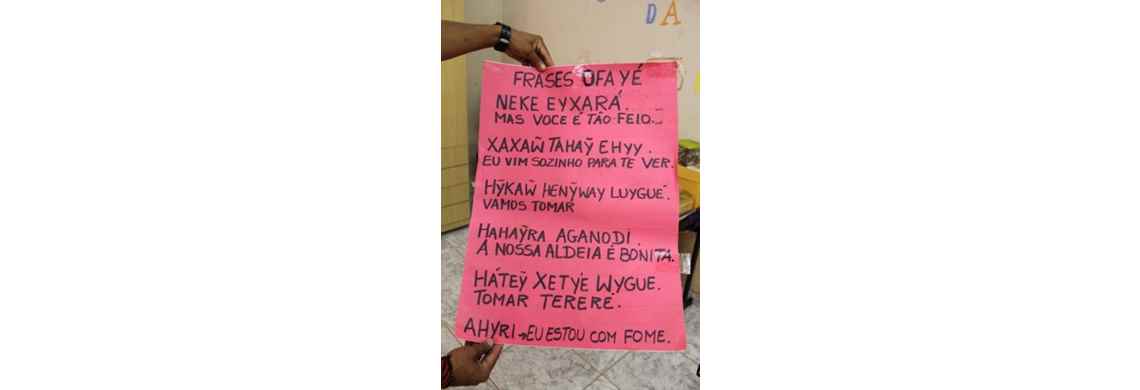 DA
FRASES OFAYÉ
NEKE EYXARÁ.
MAS VOCE É TÃO FEIO.
XAXAW̃ TAHAỸ EHYY.
EU VIM SOZINHO PARA TE VER.
HỸKAW̃ HENỸWAY LUYGUÉ.
VAMOS TOMAR
HAHAỸRA AGANODÍ.
A NOSSA ALDEIA É BONITA.
HÁTEỸ XETYÈ WYGUE.
TOMAR TERERÉ.
AHYRI → EU ESTOU COM FOME.